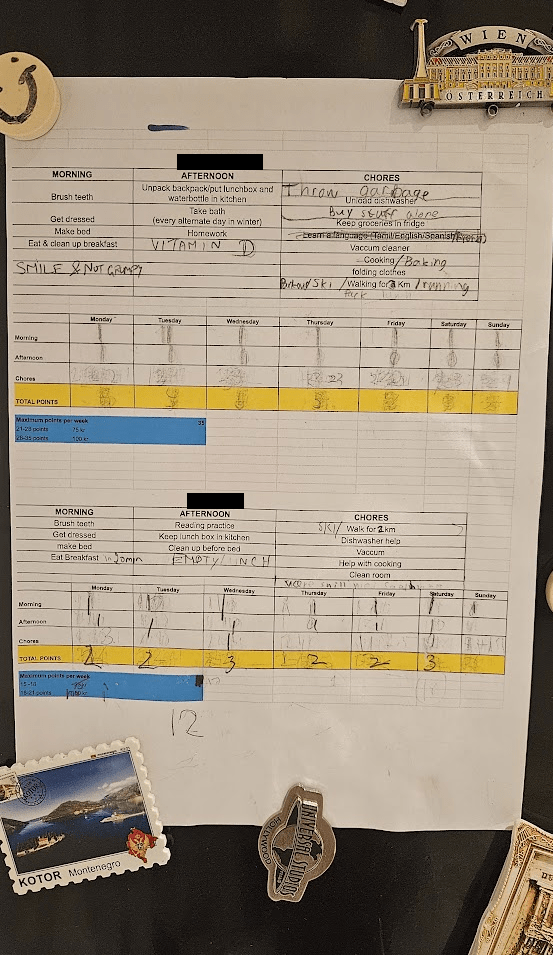 WIEN
ÖSTERREICH
MORNING AFTERNOON CHORES
Throw garbage
Brush teeth Unpack backpack/put lunchbox and waterbottle in kitchen Unload dishwasher
Buy stuff alone
Get dressed Take bath (every alternate day in winter) Keep groceries in fridge
Make bed Homework Learn a language (Tamil/English/Spanish/
Eat & clean up breakfast VITAMIN D Vaccum cleaner
Cooking/Baking
SMILE & NOT GRUMPY folding clothes
/Ski/Walking for 2 Km /running
Monday Tuesday Wednesday Thursday Friday Saturday Sunday
Morning
Afternoon
Chores
TOTAL POINTS
Maximum points per week 35
21-28 points 75 kr
28-35 points 100 kr
MORNING AFTERNOON CHORES
Brush teeth Reading practice SKI/ Walk for 2 km
Get dressed Keep lunch box in kitchen Dishwasher help
make bed Clean up before bed Vaccum
Eat Breakfast EMPTY LUNCH Help with cooking
Clean room
Monday Tuesday Wednesday Thursday Friday Saturday Sunday
Morning 1 1 1 1 1 1 1
Afternoon 1 1 1 1 1 1
Chores
TOTAL POINTS 2 2 3 2 2 3
Maximum points per week
15-18
18-21 points
12
KOTOR Montenegro
UNIVERSAL STUDIOS
HOLLYWOOD